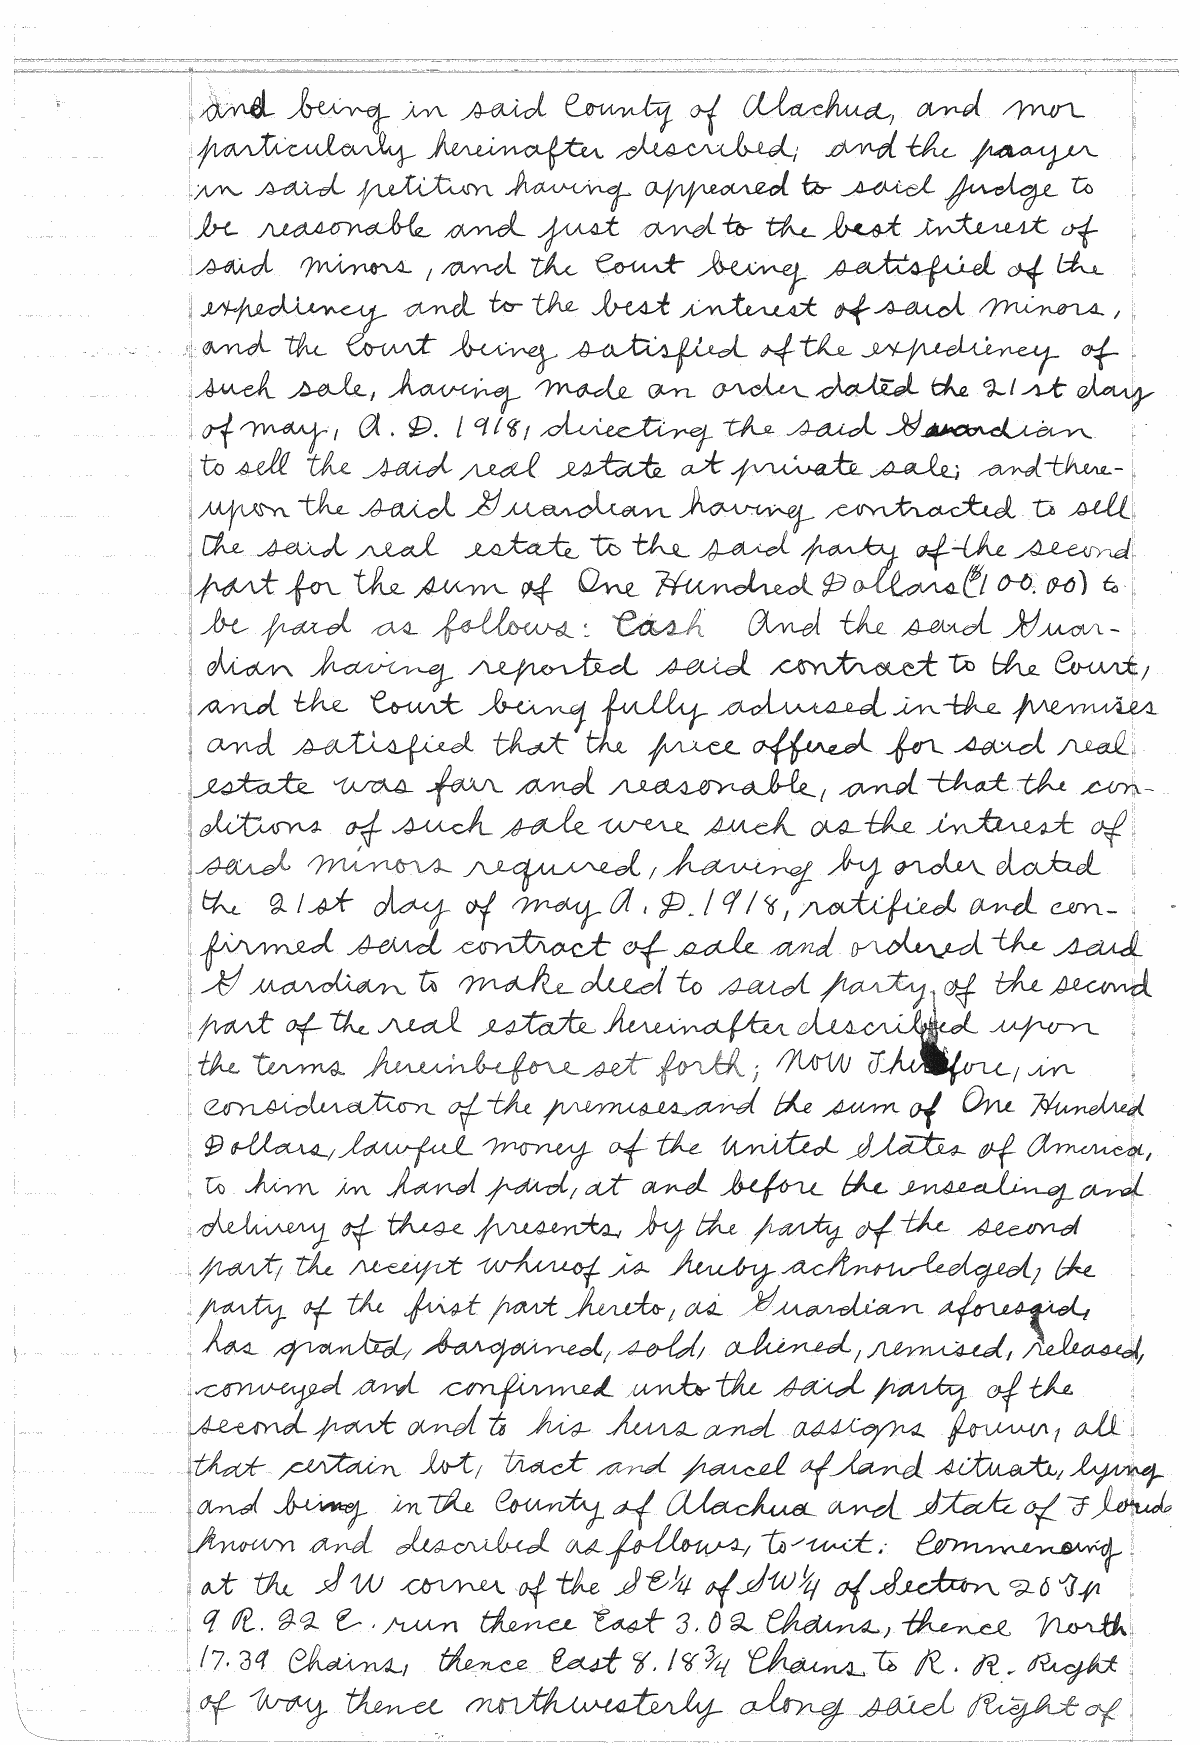 and being in said County of Alachua, and mor
particularly hereinafter described; and the prayer
in said petition having appeared to said judge to
be reasonable and just and to the best interest of
said minors, and the Court being satisfied of the
expediency and to the best interest of said minors,
and the Court being satisfied of the expediency of
such sale, having made an order dated the 21st day
of may, A. D. 1918, directing the said Guardian
to sell the said real estate at private sale; and there-
upon the said Guardian having contracted to sell
the said real estate to the said party of the second
part for the sum of One Hundred Dollars ($100.00) to
be paid as follows: Cash And the said Guar-
dian having reported said contract to the Court,
and the Court being fully advised in the premises
and satisfied that the price offered for said real
estate was fair and reasonable, and that the con-
ditions of such sale were such as the interest of
said minors required, having by order dated
the 21st day of may A. D. 1918, ratified and con-
firmed said contract of sale and ordered the said
Guardian to make deed to said party of the second
part of the real estate hereinafter described upon
the terms hereinbefore set forth; NOW Therefore, in
consideration of the premises and the sum of One Hundred
Dollars, lawful money of the United States of America,
to him in hand paid, at and before the ensealing and
delivery of these presents, by the party of the second
part, the receipt whereof is hereby acknowledged, the
party of the first part hereto, as Guardian aforesaid,
has granted, bargained, sold, aliened, remised, released,
conveyed and confirmed unto the said party of the
second part and to his heirs and assigns forever, all
that certain lot, tract and parcel of land situate, lying
and being in the County of Alachua and State of Florida
known and described as follows, to-wit: Commencing
at the SW corner of the SE¼ of SW¼ of Section 20 Tp
9 R. 22 E. run thence East 3.02 Chains, thence North
17.39 Chains, thence East 8.18¾ Chains to R. R. Right
of Way thence northwesterly along said Right of